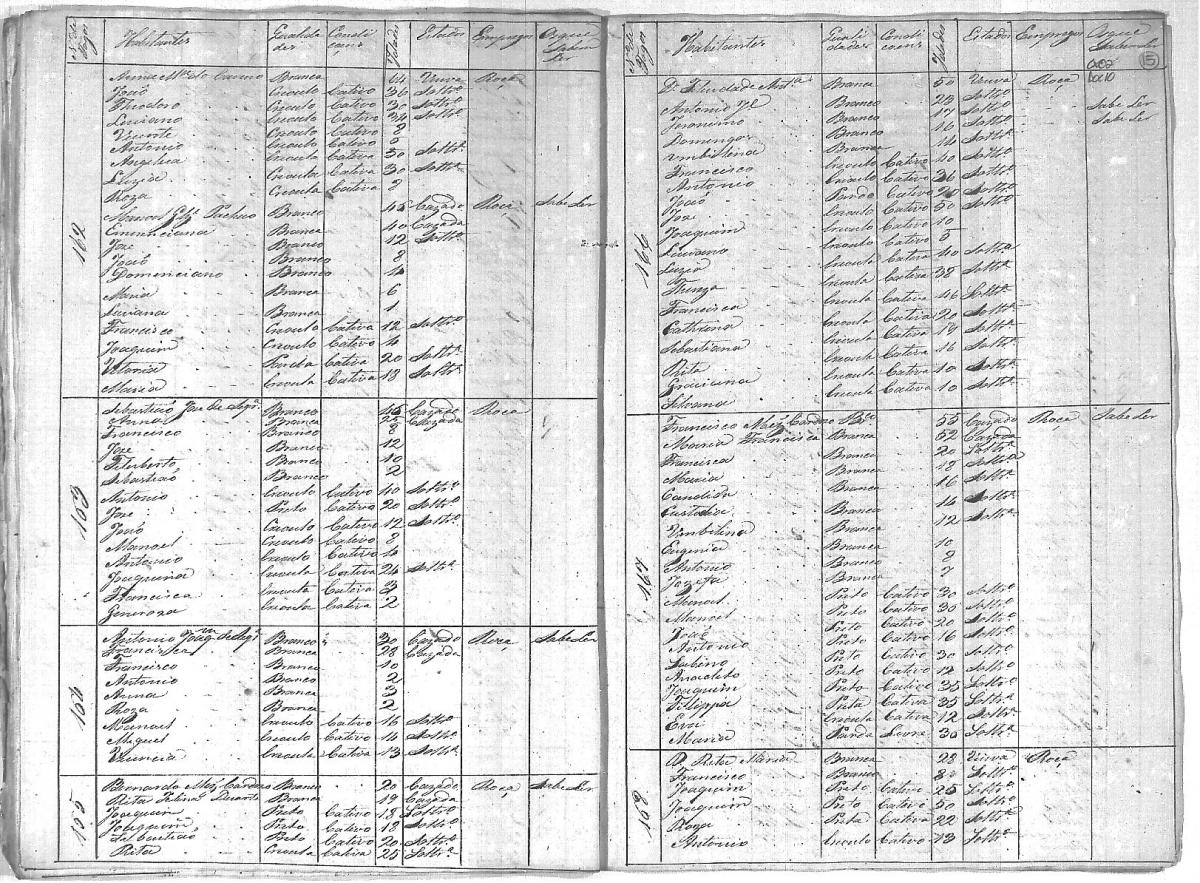 Nos de Fogos Habitantes Qualidades Condicoens Idades Estados Empregos Oque Sabem Ler
Anna Ma. do Carmo Branca 64 Viuva Roça
João Crioulo Cativo 36 Soltro.
Theodoro Crioulo Cativo 30 Soltro.
Luciano Crioulo Cativo 34 Soltro.
Vicente Crioulo Cativo 8
Antonio Crioulo Cativo 2
Angelica Crioula Cativa 50 Soltra.
Luzia Crioula Cativa 30 Soltra.
Roza Crioula Cativa 2
162 Manoel Pacheco Branco 45 Cazado Roça Sabe Ler
Emerenciana Branca 40 Cazada
Joze Branco 12 Soltro.
João Branco 8
Domenciano Branco 4
Maria Branca 6
Luciana Branca 1
Francisco Crioulo Cativo 12 Soltro.
Joaquim Crioulo Cativo 4
Vitoria Parda Cativa 20 Soltra.
Maria Crioula Cativa 18 Soltra.
163 Sebastião Joze de Branco 45 Cazado Roça
Anna Branca 25 Cazada
Francisco Branco 8
Joze Branco 12
Felisberto Branco 10
Sebastião Branco 2
Antonio Crioulo Cativo 40 Soltro.
Joze Preto Cativo 20 Soltro.
João Crioulo Cativo 12 Soltro.
Manoel Crioulo Cativo 8
Antonio Crioulo Cativo 4
Joaquina Crioula Cativa 24 Soltra.
Francisca Crioula Cativa 3
Generoza Crioula Cativa 2
164 Antonio Joaqm. de Branco 30 Cazado Roça Sabe Ler
Francisca Branca 28 Cazada
Francisco Branco 10
Antonio Branco 2
Anna Branca 3
Roza Branca 2
Manoel Crioulo Cativo 16 Soltro.
Miguel Crioulo Cativo 14 Soltro.
Crioula Cativa 13 Soltra.
165 Bernardo Cardozo Branco 20 Cazado Roça Sabe Ler
Rita Duarte Branca 19 Cazada
Joaquim Preto Cativo 18 Soltro.
Joaquim Preto Cativo 18 Soltro.
Sebastião Preto Cativo 20 Soltro.
Rita Crioula Cativa 25 Soltra.
Nos de Fogos Habitantes Qualidades Condicoens Idades Estados Empregos Oque Sabem Ler
15
166 Da. Felicidade Branca 50 Viuva Roça
Antonio Branco 23 Soltro.
Jeronimo Branco 17 Soltro. Sabe Ler
Domingos Branco 16 Soltro. Sabe Ler
Umbilina Branca 14 Soltra.
Francisco Crioulo Cativo 40 Soltro.
Antonio Crioulo Cativo 26 Soltro.
João Pardo Cativo 20 Soltro.
Joze Crioulo Cativo 50 Soltro.
Joaquim Crioulo Cativo 10
Luciano Crioulo Cativo 5
Luzia Crioula Cativa 40 Soltra.
Crioula Cativa 38 Soltra.
Francisca Crioula Cativa 46 Soltra.
Cathrina Crioula Cativa 20 Soltra.
Sebastiana Crioula Cativa 18 Soltra.
Rita Crioula Cativa 16 Soltra.
Graciana Crioula Cativa 10 Soltra.
Silvana Crioula Cativa 10 Soltra.
167 Francisco Cardozo Bco. 55 Cazado Roça Sabe Ler
Maria Francisca Branca 52 Cazada
Francisca Branca 20 Soltra.
Maria Branca 18 Soltra.
Candida Branca 16 Soltra.
Custodia Branca 14 Soltra.
Umbilina Branca 12 Soltra.
Eugenia Branca 10
Antonio Branco 8
Jozefa Branca 7
Manoel Preto Cativo 30 Soltro.
Manoel Preto Cativo 30 Soltro.
João Preto Cativo 20 Soltro.
Antonio Preto Cativo 16 Soltro.
Sabino Preto Cativo 30 Soltro.
Anacleto Preto Cativo 12 Soltro.
Joaquim Preto Cativo 35 Soltro.
Filippa Preta Cativa 35 Soltra.
Crioula Cativa 12 Soltra.
Maria Parda Livre 30 Soltra.
168 D. Rita Maria Branca 28 Viuva Roça
Francisco Branco 8 Soltro.
Joaquim Preto Cativo 25 Soltro.
Joaquim Preto Cativo 50 Soltro.
Roza Preta Cativa 22 Soltra.
Antonio Crioulo Cativo 13 Soltro.